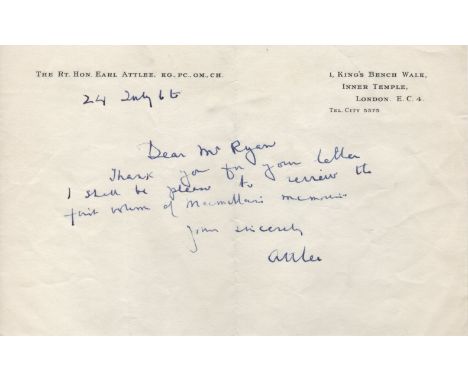 THE RT. HON. EARL ATTLEE, KG. PC. OM. CH.
1, KING'S BENCH WALK,
INNER TEMPLE,
LONDON. E.C. 4.
TEL. CITY 5575
24 July 65
Dear Mr Ryan
Thank you for your letter
I shall be please to review the
first volume of Macmillan's memoirs
Yours sincerely
Attlee